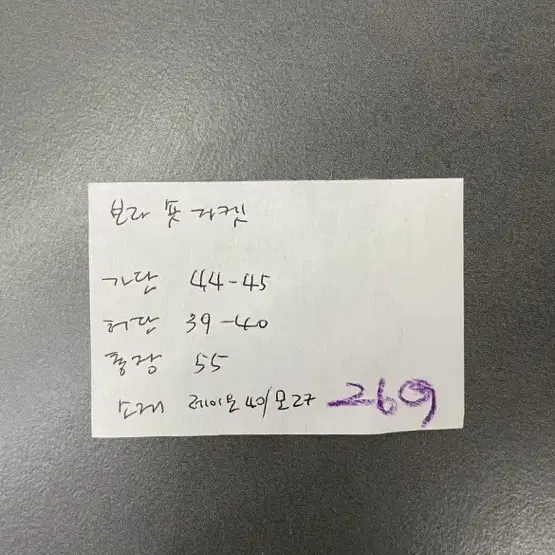 보라 숏 자켓
가단 44-45
허단 39-40
총장 55
소재 레이온 40/모 27 269